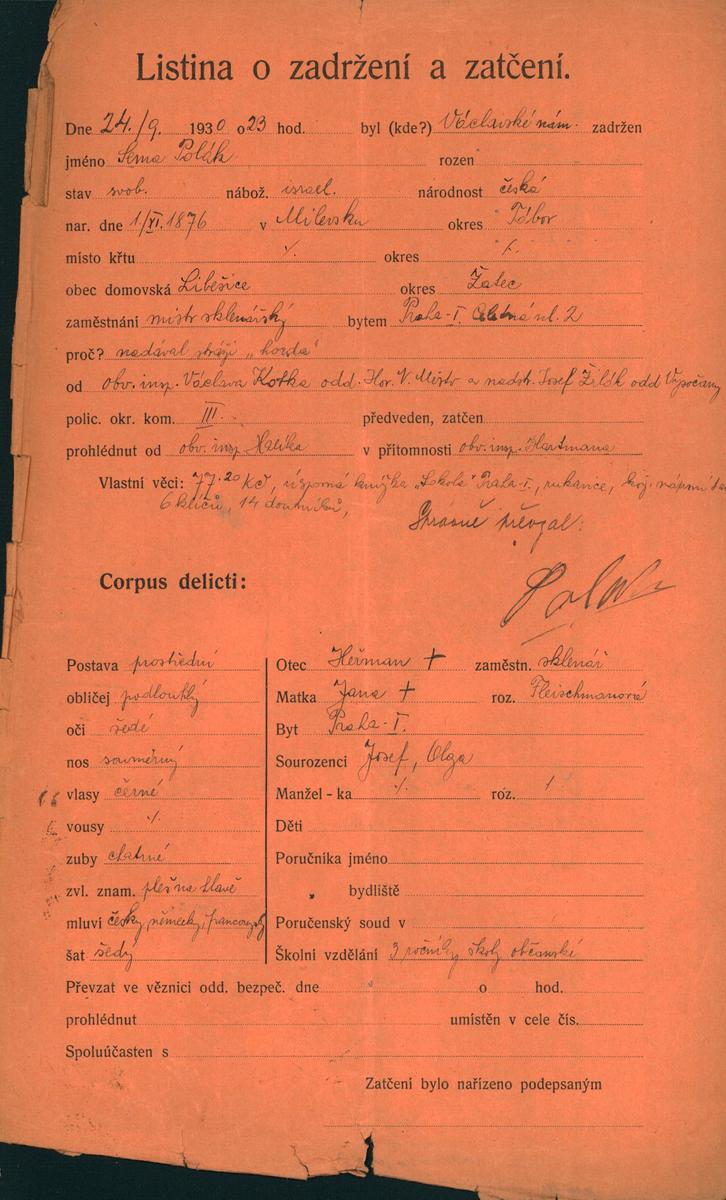 Listina o zadržení a zatčení.
Dne 24./9. 1930 o 23 hod. byl (kde?) Václavské nám. zadržen
jméno Polák rozen
stav svob. nábož. israel. národnost česká
nar. dne 1/XI. 1876 v Milevsku okres Tábor
místo křtu ./. okres ./.
obec domovská Liběšice okres Žatec
zaměstnání mistr sklenářský bytem Praha-I. ul. 2
proč? nadával stráži „horda"
od obv. insp. Václava Kotka odd. Hor. V. Město a nadstr. Josef Žilák odd Vysočany
polic. okr. kom. III. předveden, zatčen
prohlédnut od obv. insp. Halíka v přítomnosti obv. insp. Hartmana
Vlastní věci: 77.20 Kč, úsporná knížka „Sokola" Praha-I., rukavice,
6 klíčů, 14 doutníků,
Správně převzal:
Corpus delicti:
Polák
Postava prostřední
obličej podlouhlý
oči šedé
nos souměrný
vlasy černé
vousy ./.
zuby chatrné
zvl. znam. pleš na hlavě
mluví česky, německy, francouzsky
šat šedý
Otec Heřman + zaměstn. sklenář
Matka Jana + roz. Fleischmanová
Byt Praha-I.
Sourozenci Josef, Olga
Manžel - ka ./. roz. /
Děti
Poručníka jméno
„ bydliště
Poručenský soud v
Školní vzdělání 3 ročníky školy občanské
Převzat ve věznici odd. bezpeč. dne o hod.
prohlédnut umístěn v cele čís.
Spoluúčasten s
Zatčení bylo nařízeno podepsaným